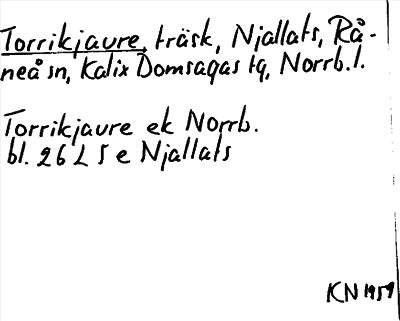 Torrikjaure, träsk, Njallats, Rå-
neå sn, Kalix Domsagas tg, Norrb.l.
Torrikjaure ek Norrb.
bl. 26 L 5 e Njallats
KN 1959